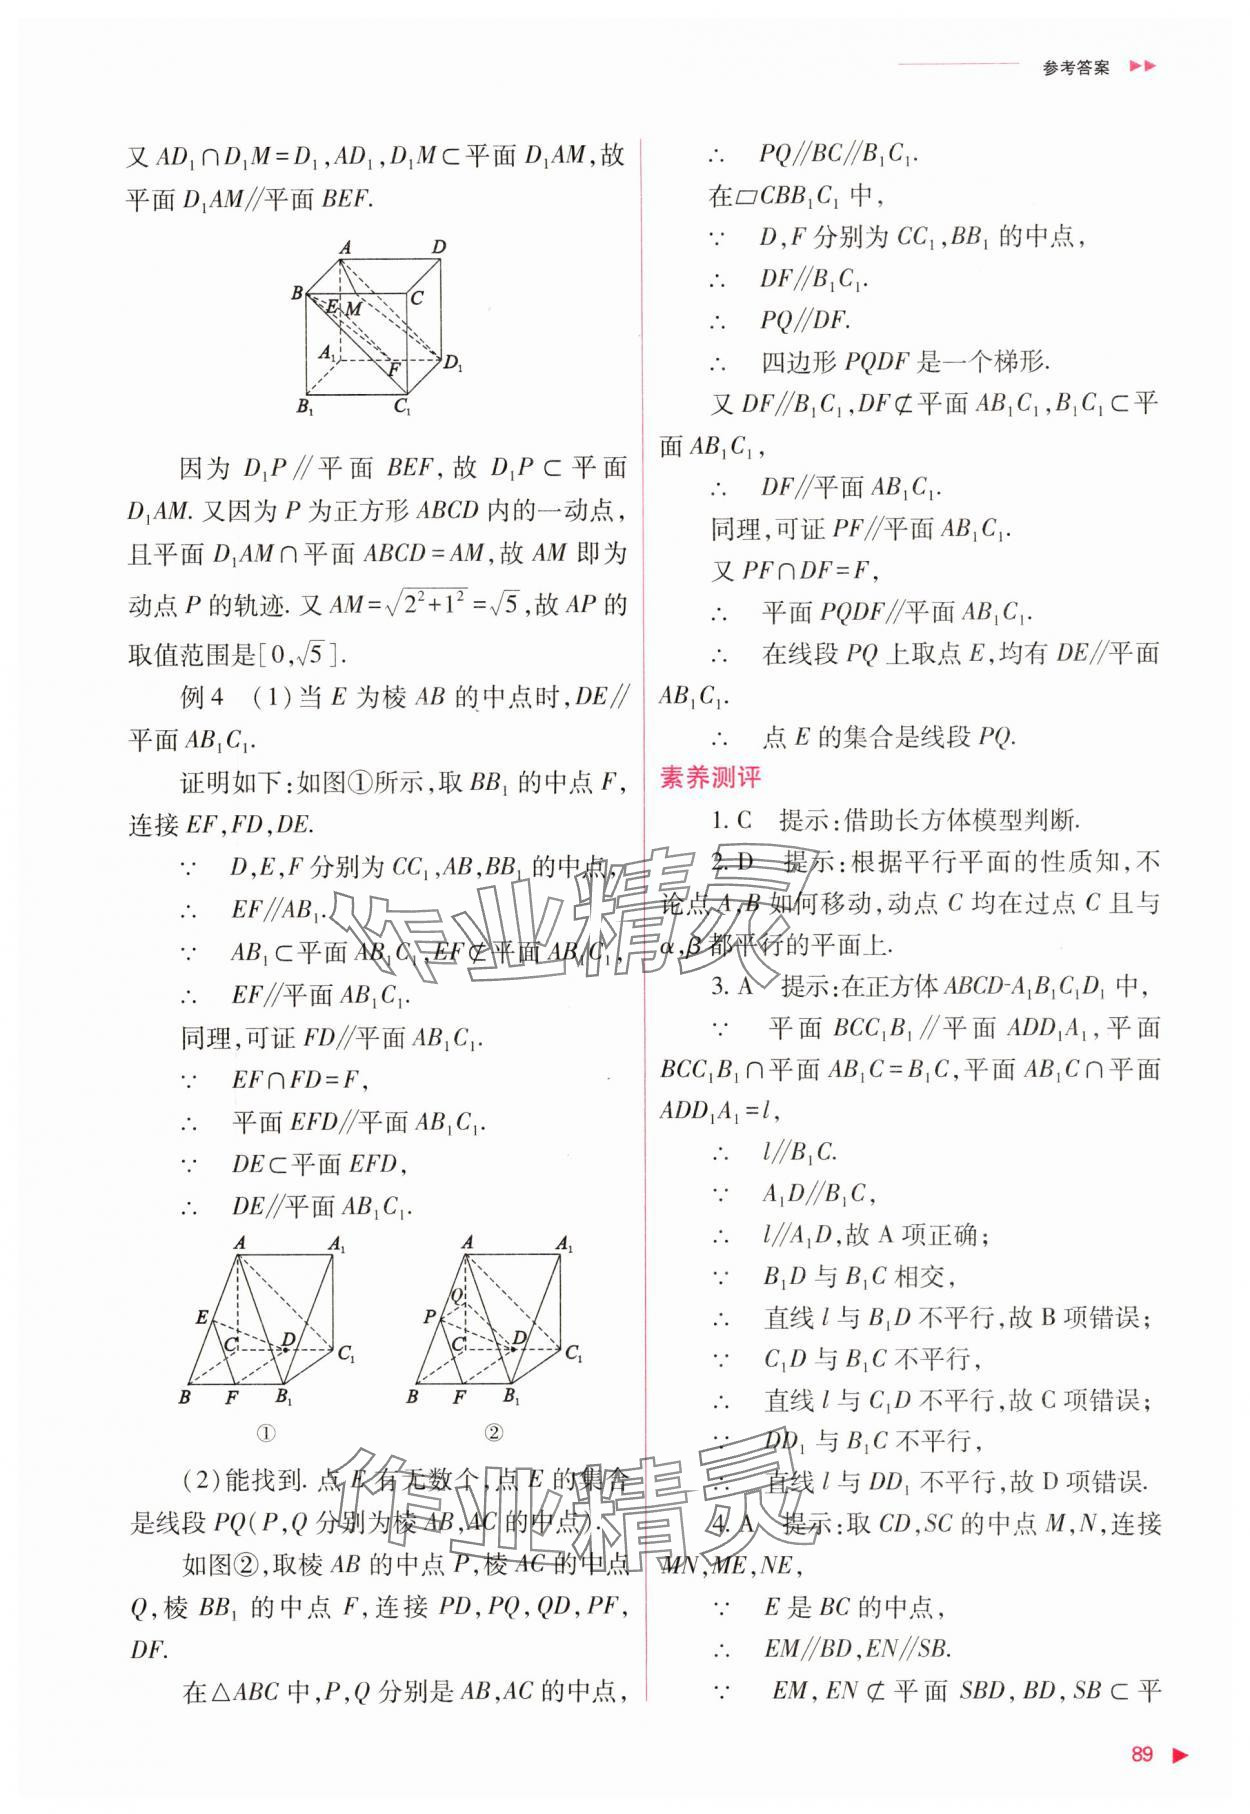 参考答案
又 AD₁∩D₁M=D₁,AD₁,D₁M⊂平面 D₁AM,故
平面 D₁AM∥平面 BEF.
A D
B E M C
A₁ F D₁
B₁ C₁
因为 D₁P∥平面 BEF,故 D₁P⊂平面
D₁AM. 又因为 P 为正方形 ABCD 内的一动点,
且平面 D₁AM∩平面 ABCD=AM,故 AM 即为
动点 P 的轨迹. 又 AM=√(2²+1²)=√5,故 AP 的
取值范围是[0,√5].
例4 (1)当 E 为棱 AB 的中点时,DE∥
平面 AB₁C₁.
证明如下:如图①所示,取 BB₁ 的中点 F,
连接 EF,FD,DE.
∵ D,E,F 分别为 CC₁,AB,BB₁ 的中点,
∴ EF∥AB₁.
∵ AB₁⊂平面 AB₁C₁,EF⊄平面 AB₁C₁,
∴ EF∥平面 AB₁C₁.
同理,可证 FD∥平面 AB₁C₁.
∵ EF∩FD=F,
∴ 平面 EFD∥平面 AB₁C₁.
∵ DE⊂平面 EFD,
∴ DE∥平面 AB₁C₁.
A A₁
E C D C₁
B F B₁
①
A A₁
Q
P C D C₁
B F B₁
②
(2)能找到. 点 E 有无数个,点 E 的集合
是线段 PQ(P,Q 分别为棱 AB,AC 的中点).
如图②,取棱 AB 的中点 P,棱 AC 的中点
Q,棱 BB₁ 的中点 F,连接 PD,PQ,QD,PF,
DF.
在△ABC 中,P,Q 分别是 AB,AC 的中点,
∴ PQ∥BC∥B₁C₁.
在▱CBB₁C₁ 中,
∵ D,F 分别为 CC₁,BB₁ 的中点,
∴ DF∥B₁C₁.
∴ PQ∥DF.
∴ 四边形 PQDF 是一个梯形.
又 DF∥B₁C₁,DF⊄平面 AB₁C₁,B₁C₁⊂平
面 AB₁C₁,
∴ DF∥平面 AB₁C₁.
同理,可证 PF∥平面 AB₁C₁.
又 PF∩DF=F,
∴ 平面 PQDF∥平面 AB₁C₁.
∴ 在线段 PQ 上取点 E,均有 DE∥平面
AB₁C₁.
∴ 点 E 的集合是线段 PQ.
素养测评
1. C 提示:借助长方体模型判断.
2. D 提示:根据平行平面的性质知,不
论点 A,B 如何移动,动点 C 均在过点 C 且与
α,β 都平行的平面上.
3. A 提示:在正方体 ABCD-A₁B₁C₁D₁ 中,
∵ 平面 BCC₁B₁∥平面 ADD₁A₁,平面
BCC₁B₁∩平面 AB₁C=B₁C,平面 AB₁C∩平面
ADD₁A₁=l,
∴ l∥B₁C.
∵ A₁D∥B₁C,
∴ l∥A₁D,故 A 项正确;
∵ B₁D 与 B₁C 相交,
∴ 直线 l 与 B₁D 不平行,故 B 项错误;
∵ C₁D 与 B₁C 不平行,
∴ 直线 l 与 C₁D 不平行,故 C 项错误;
∵ DD₁ 与 B₁C 不平行,
∴ 直线 l 与 DD₁ 不平行,故 D 项错误.
4. A 提示:取 CD,SC 的中点 M,N,连接
MN,ME,NE,
∵ E 是 BC 的中点,
∴ EM∥BD,EN∥SB.
∵ EM,EN⊄平面 SBD,BD,SB⊂平
89
作业精灵
作业精灵